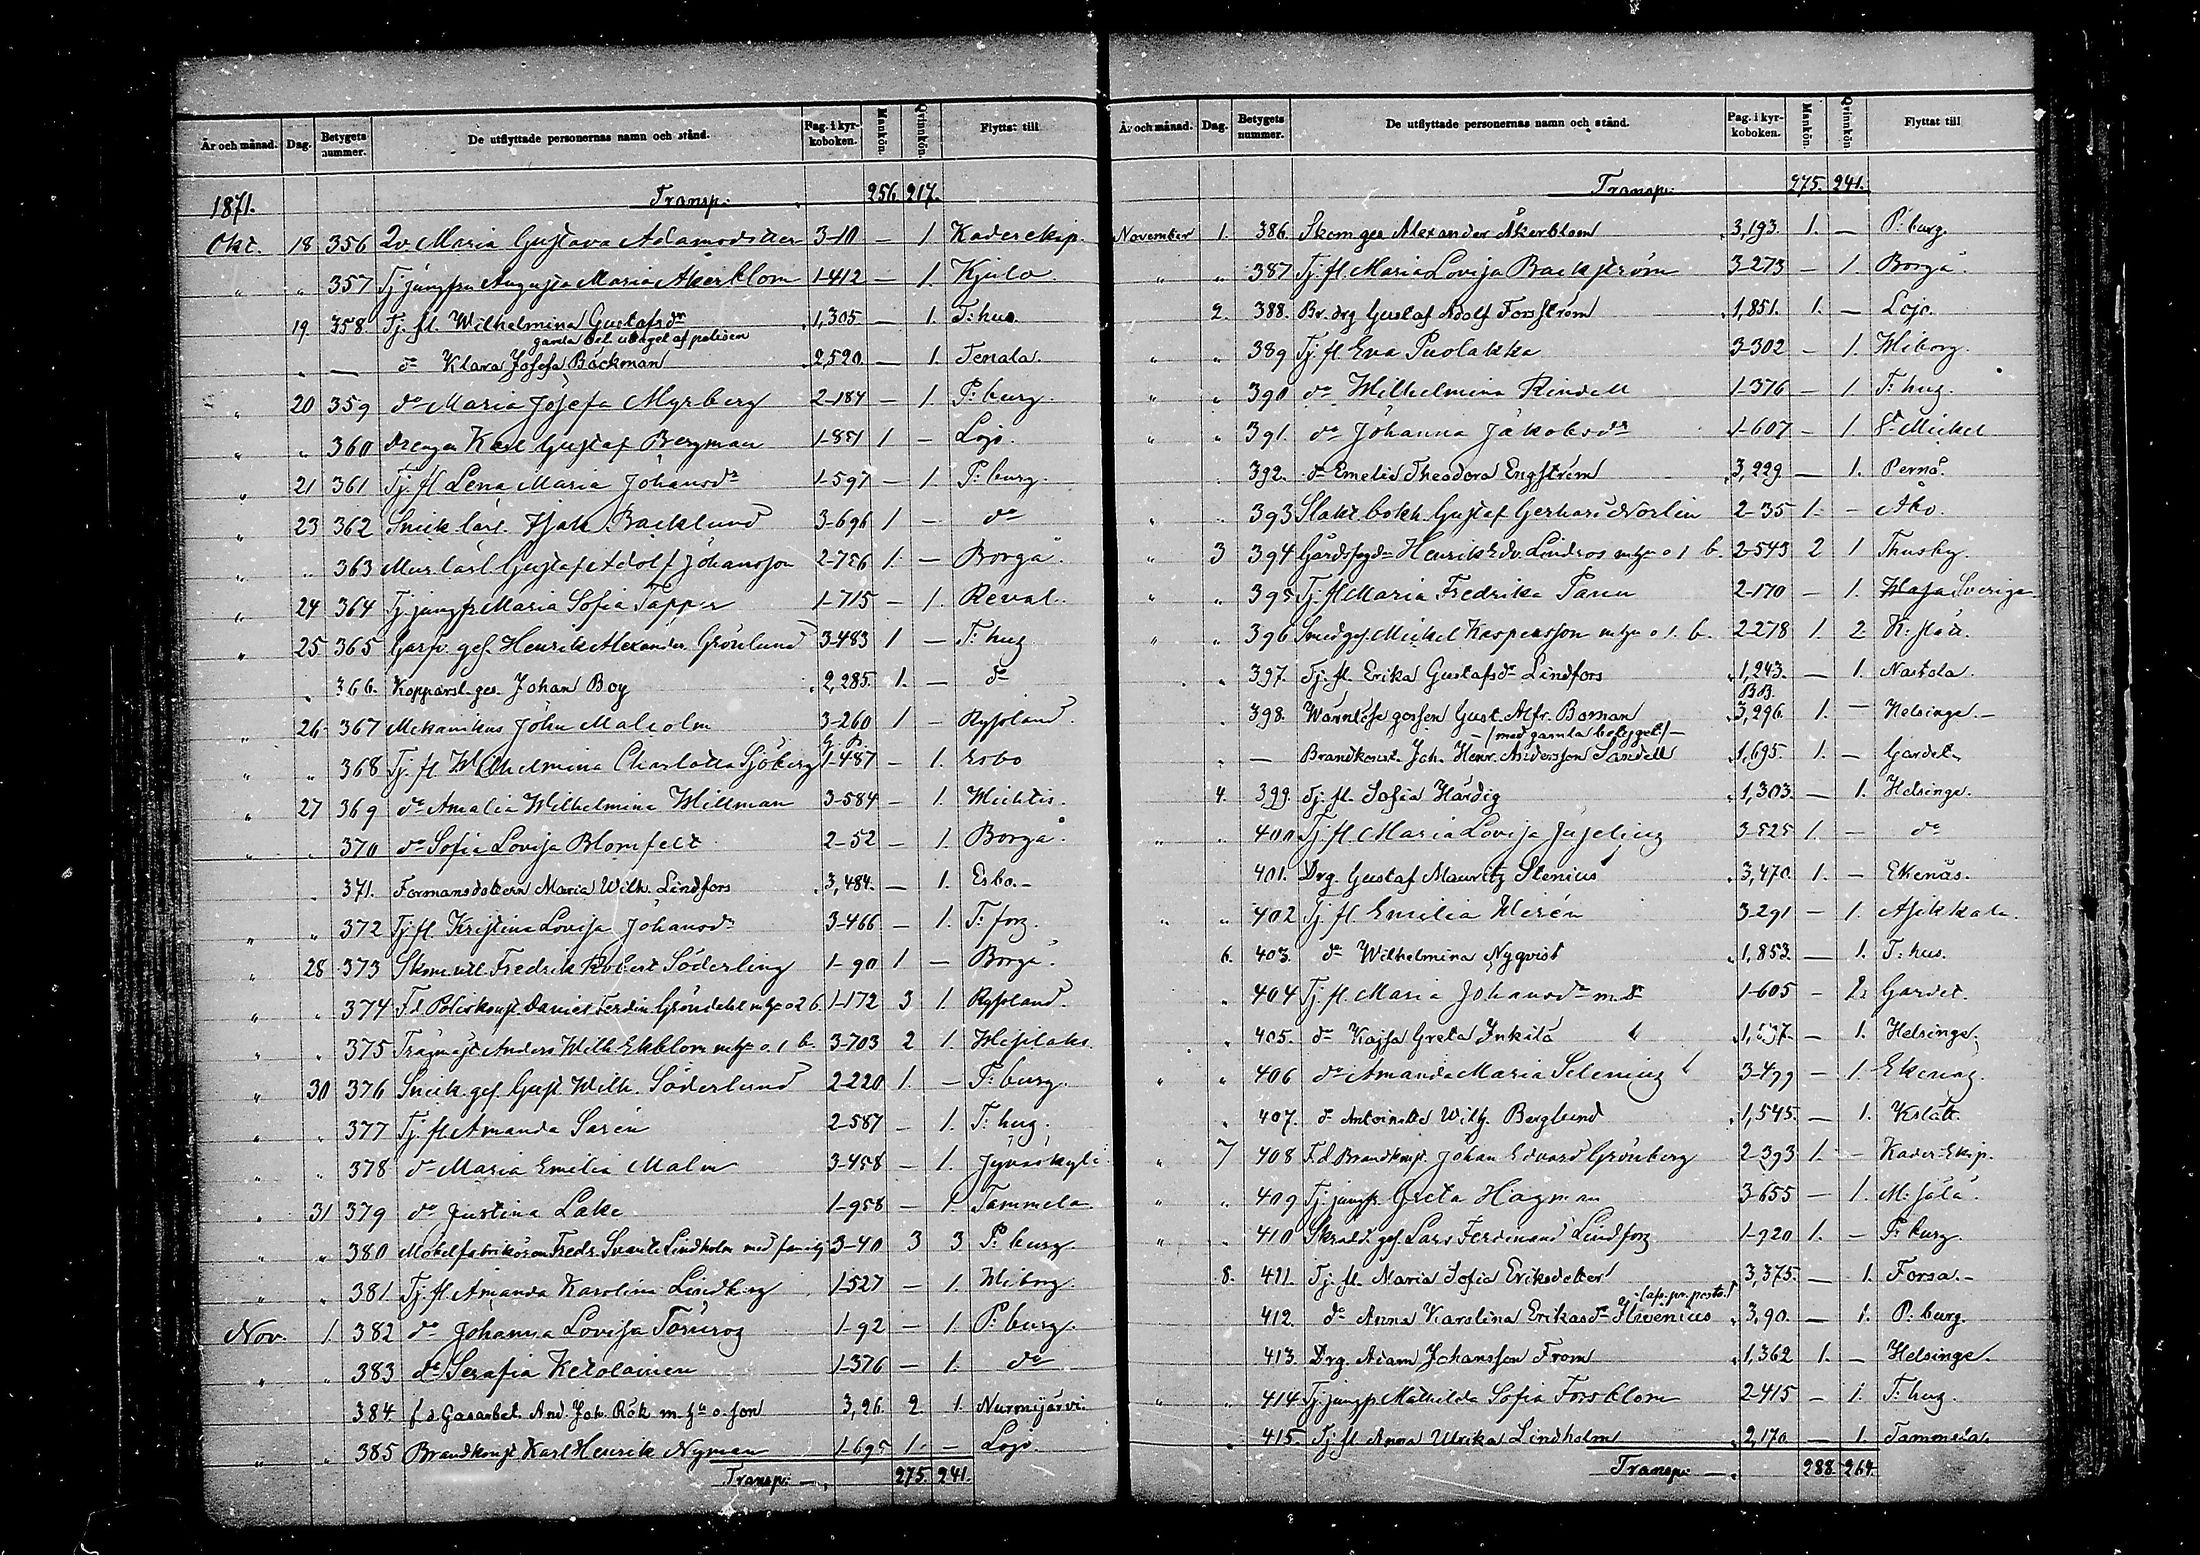 År och månad. Dag. Betygets nummer. De utflyttade personernas namn och stånd. Pag. i kyrkoboken. Mankön. Qvinnkön. Flyttat till
1871. Transp. 256 217.
Okt. 18 356 Qv. Maria Gustava Adamsdotter 3-10 — 1 Kader exp.
" " 357 Tj. jungfru Augusta Maria Åkerblom 1-412 — 1. Kjulo
19 358. Tj. fl. Wilhelmina Gustafsdr 1,305 — 1. T:hus.
gamla bet. uttaget af polisen
" — do Klara Josefa Bäckman 2,520 — 1. Tenala.
" 20 359 do Maria Josefa Myrberg 2-184 — 1. P:burg.
" " 360 Drengen Karl Gustaf Bergman 1-851 1 — Lojo.
" 21 361 Tj. fl Lena Maria Johansdr 1-597 — 1 P:burg.
" 23 362 Snick. lärl. Isak Backlund 3-696 1 — do
" " 363 Mur. lärl. Gustaf Adolf Johansson 2-756 1. — Borgå.
" 24 364 Tj. jungfr Maria Sofia Tapper 1-715 — 1. Reval.
" 25 365 Garfv. ges. Henrik Alexander Grönlund 3-483 1 — T:hus
" 366. Kopparsl. ges. Johan Boy 2,285. 1. — do
" 26 367 Mekanikus John Malcolm 3-260 1 — Ryssland.
" " 368 Tj. fl. Wilhelmina Charlotta Sjöberg 1-487 — 1. Esbo
" 27 369 do Amalia Wilhelmina Willman 3-584 — 1. Wichtis.
" " 370 do Sofia Lovisa Blomfelt 2-52 — 1. Borgå.
" 371. Formansdottern Maria Wilh. Lindfors 3,484. — 1. Esbo.
" " 372 Tj. fl. Kristina Lovisa Johansdr 3-466 — 1. T:fors.
" 28 373 Skom. utl. Fredrik Robert Söderling 1-90 1 — Borgå.
" " 374 F.d. Poliskonst. Daniel Ferdin. Gröndahl m. hu o 2 b. 1-172 3 1. Ryssland.
" " 375 Trägmäst Anders Wilh. Ekblom m. hu o. 1 b. 3-703 2 1. Westlaks.
" 30 376 Snick. ges. Gust. Wilh. Söderlund 2-220 1. — P:burg.
" " 377 Tj. fl. Amanda Sarén 2-587 — 1. T:hus.
" " 378 do Maria Emilia Malm 3-458 — 1. Jyväskylä.
" 31 379 do Justina Lake 1-958 — 1 Tammela.
" " 380 Möbelfabrikören Fredr. Svante Lindholm med familj 3-40 3 3 P:burg.
" " 381 Tj. fl. Amanda Karolina Lindberg 1-527 — 1. Wiborg.
Nov. 1 382 do Johanna Lovisa Törnros 1-92 — 1. P:burg.
" " 383 do Serafia Ketolainen 1-376 — 1. do
384 f d Gasarbet. And. Joh. Rök m. hu o. son 3,26. 2 1. Nurmijärvi.
" " 385 Brandkonst. Karl Henrik Nyman 1-695 1. — Lojo.
Transp. — 275. 241.
År och månad. Dag. Betygets nummer. De utflyttade personernas namn och stånd. Pag. i kyrkoboken. Mankön. Qvinnkön. Flyttat till
Transp. 275. 241.
November 1. 386. Skom. ges Alexander Åkerblom 3,193. 1. — P:burg.
" " 387 Tj. fl. Maria Lovisa Backström 3-273 — 1. Borgå.
2. 388. Br. drg Gustaf Adolf Forsström 1,851. 1. — Lojo.
" " 389 Tj. fl. Eva Puolakka 3-302 — 1. Wiborg.
" " 390 do Wilhelmina Rindell 1-376 — 1 T:hus.
" " 391. do Johanna Jakobsdr 1-607 — 1. St Michel
392. do Emelie Theodora Engström 3,229. — 1. Pernå.
" " 393 Slakt. bokh. Gustaf Gerhard Norlin 2-35 1. — Åbo.
" 3 394 Gårdsfogden Henrik Edv. Lindros m. hu o 1 b. 2-543 2 1 Thusby.
" " 395 Tj. fl Maria Fredrika Pann 2-170 — 1. Wasa Sverige
" " 396 Smedges. Michel Kaspersson m. hu o 1. b. 2-278 1. 2 K:slätt.
" 397. Tj. fl. Erika Gustafsdr Lindfors 1,243. — 1. Nastola.
BB.
398. Wärnlösa gossen Gust. Alfr. Boman 3,296. 1. — Helsinge.
—/med gamla betyget/—
— Brandkonst. Joh. Henr. Andersson Sandell 1,695. 1. — Gardet.
4. 399. Tj. fl. Sofia Härdig 1,303. — 1. Helsinge.
" " 400 Tj. fl. Maria Lovisa Juselius 3-525 1. — do
401. Drg. Gustaf Mauritz Stenius 3,470. 1. — Ekenäs.
" " 402 Tj. fl. Emilia Werén 3-291 — 1. Asikkala.
6. 403. do Wilhelmina Nyqvist 1,853. — 1. T:hus.
" 404 Tj. fl. Maria Johansdr m. dr 1-605 — 2. Gardet.
" 405. do Kajsa Greta Inkilä 1,637. — 1. Helsinge.
" " 406 do Amanda Maria Selenius 3-499 — 1. Ekenäs.
" 407. do Antoinette Wilh. Berglund 1,545. — 1. Kslätt.
" 7 408 F.d. Brandkonst. Johan Edvard Grönberg 2-393 1. — Kader-Exp.
" " 409 Tj. jungfr. Greta Hagman 3-655 — 1. M:sälä.
" " 410 Skrädd. ges. Lars Ferdinand Lindfors 1-920 1. — P:burg.
8. 411. Tj. fl. Maria Sofia Eriksdotter 3,375. — 1. Forsa.
/afs. pr. posto./
412. do Anna Karolina Eriksdr Ilvenius 3,90. — 1. P:burg.
413. Drg. Adam Johansson From 1,362 1. — Helsinge.
" " 414 Tj. jungfr Mathilda Sofia Forsblom 2-415 — 1. T:hus.
415. Tj. fl Anna Ulrika Lindholm 2,170 — 1. Tammela.
Transp. — 288. 264.